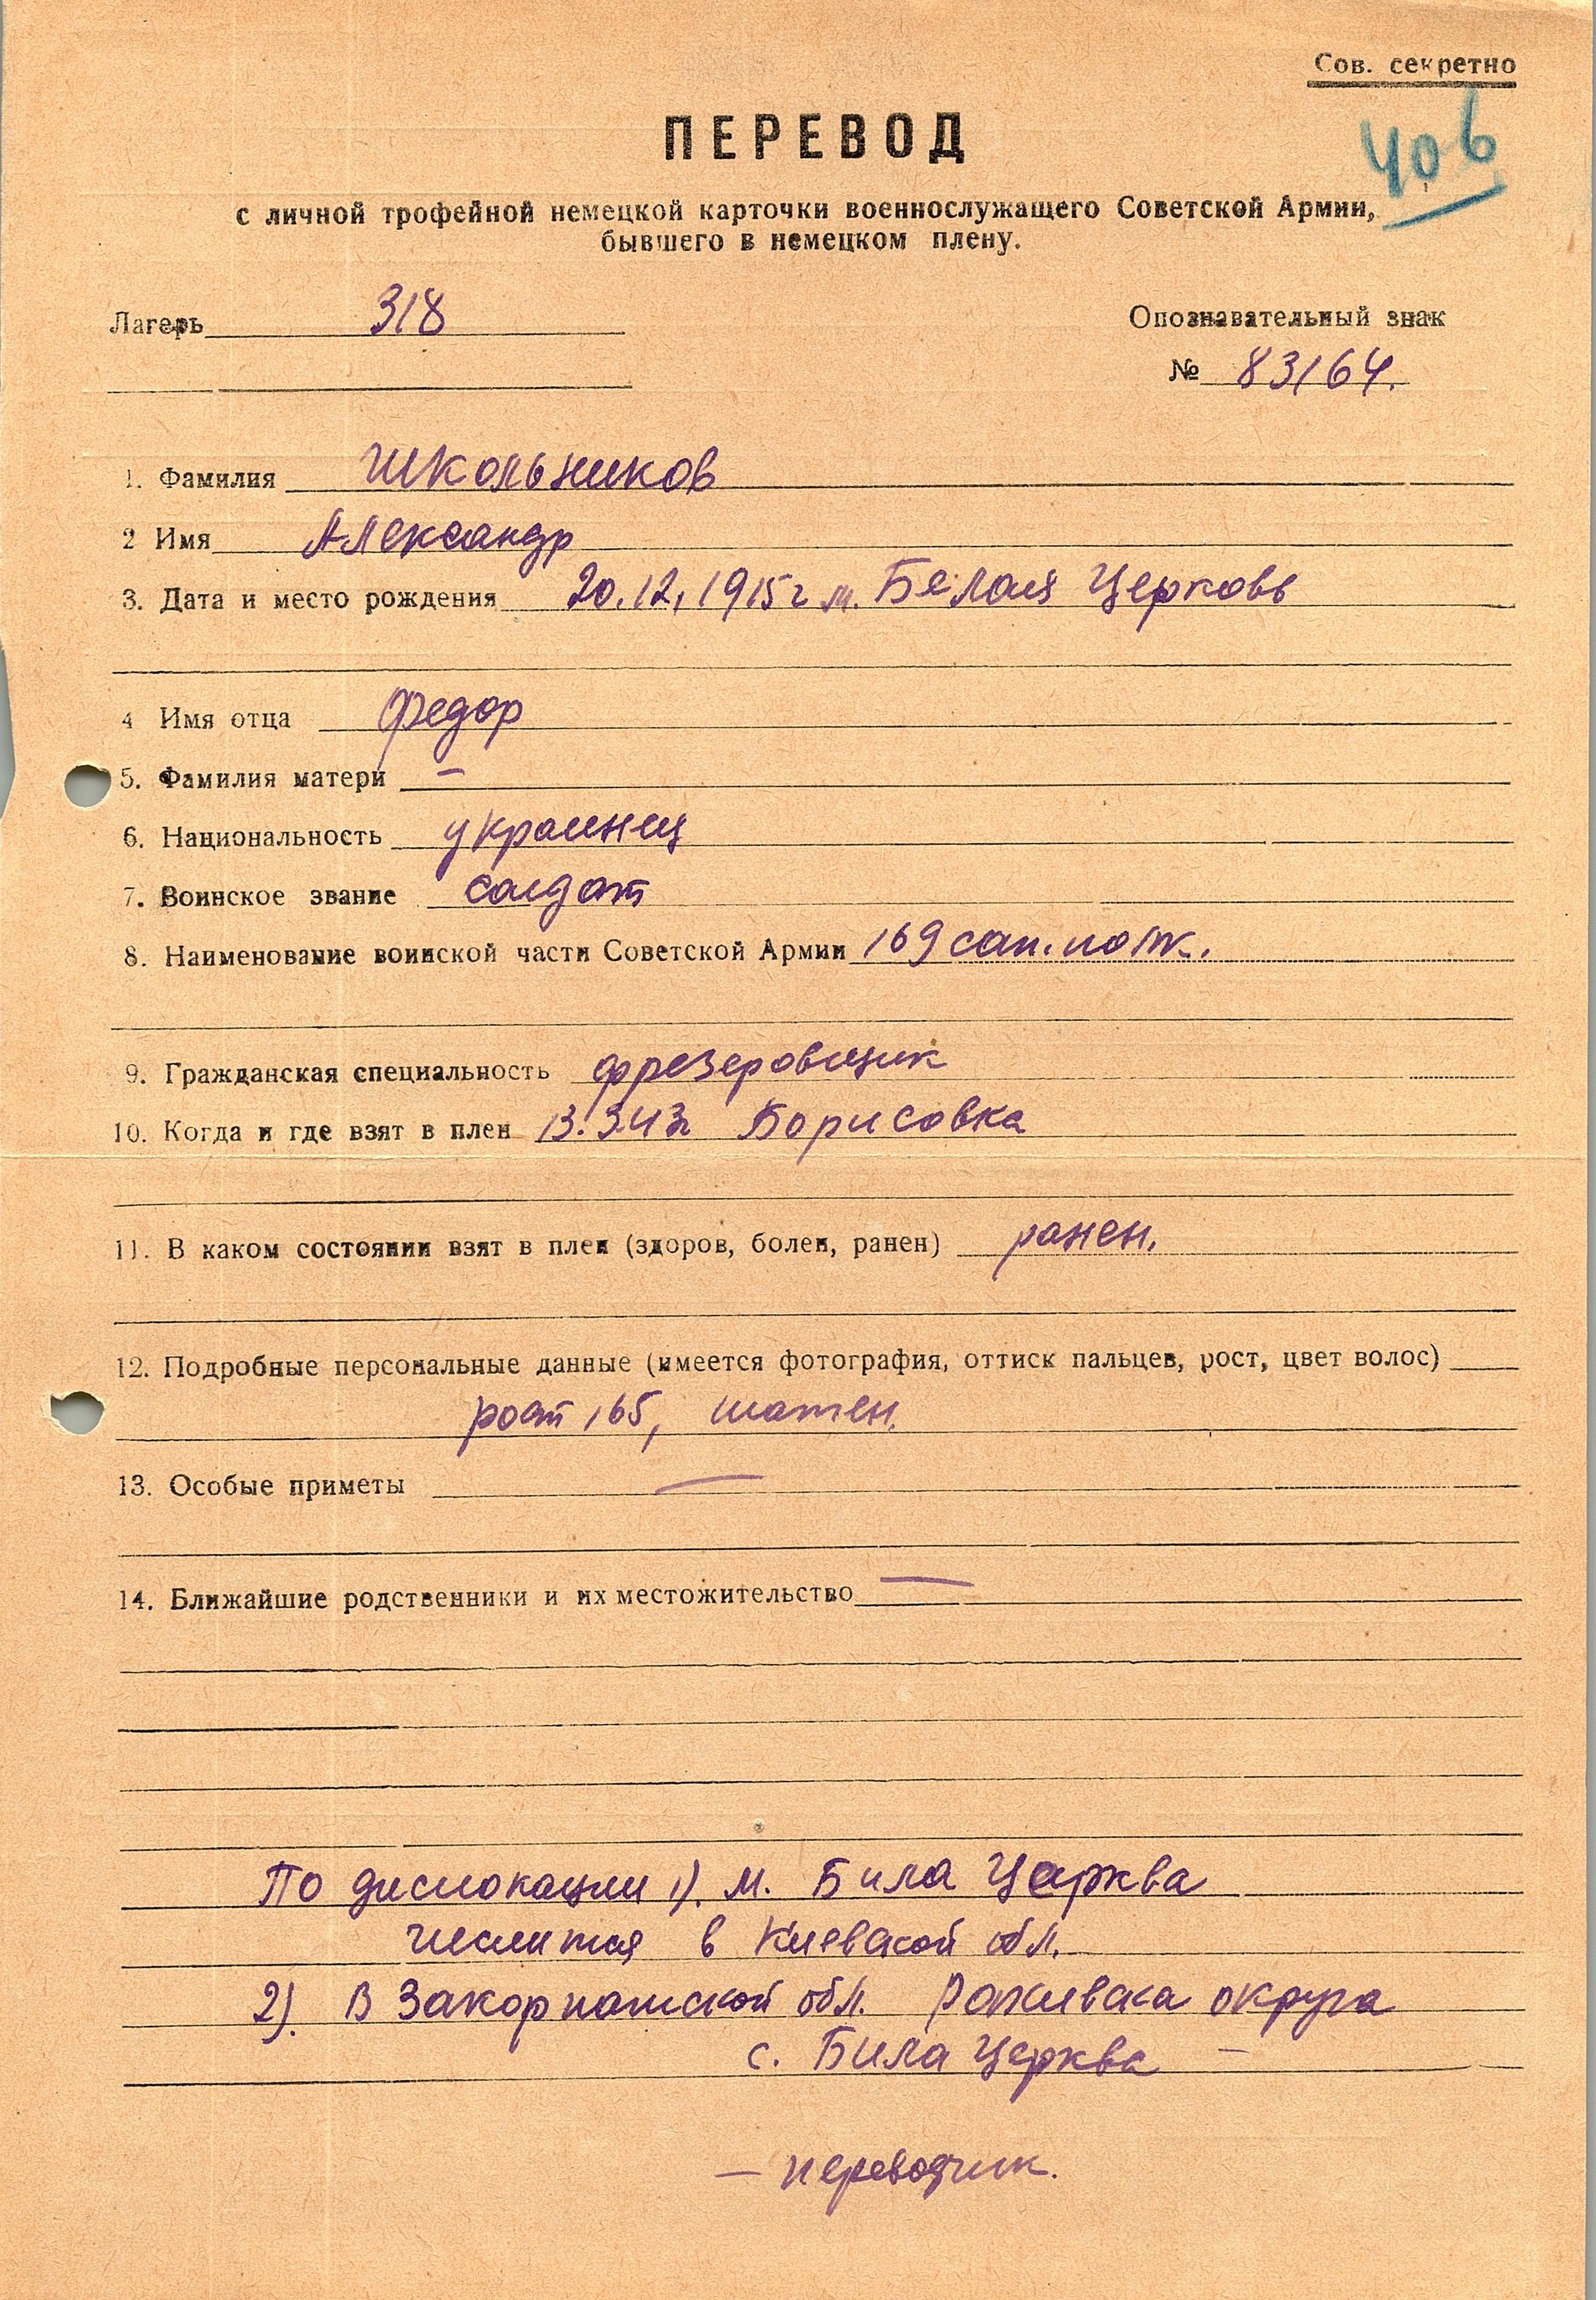 Сов. секретно
406
ПЕРЕВОД
с личной трофейной немецкой карточки военнослужащего Советской Армии,
бывшего в немецком плену.
Лагерь 318
Опознавательный знак
№ 83164.
1. Фамилия Школьников
2 Имя Александр
3. Дата и место рождения 20.12.1915 г м. Белая Церковь
4 Имя отца Федор
5. Фамилия матери —
6. Национальность украинец
7. Воинское звание солдат
8. Наименование воинской части Советской Армии 169 сап. полк.
9. Гражданская специальность фрезеровщик
10. Когда и где взят в плен 13.3.43г Борисовка
11. В каком состоянии взят в плен (здоров, болен, ранен) ранен.
12. Подробные персональные данные (имеется фотография, оттиск пальцев, рост, цвет волос)
рост 165, шатен.
13. Особые приметы —
14. Ближайшие родственники и их местожительство —
По дислокации 1). м. Била Церква
числится в Киевской обл.
2). В Закарпатской обл. округа
с. Била Церква —
— переводчик.